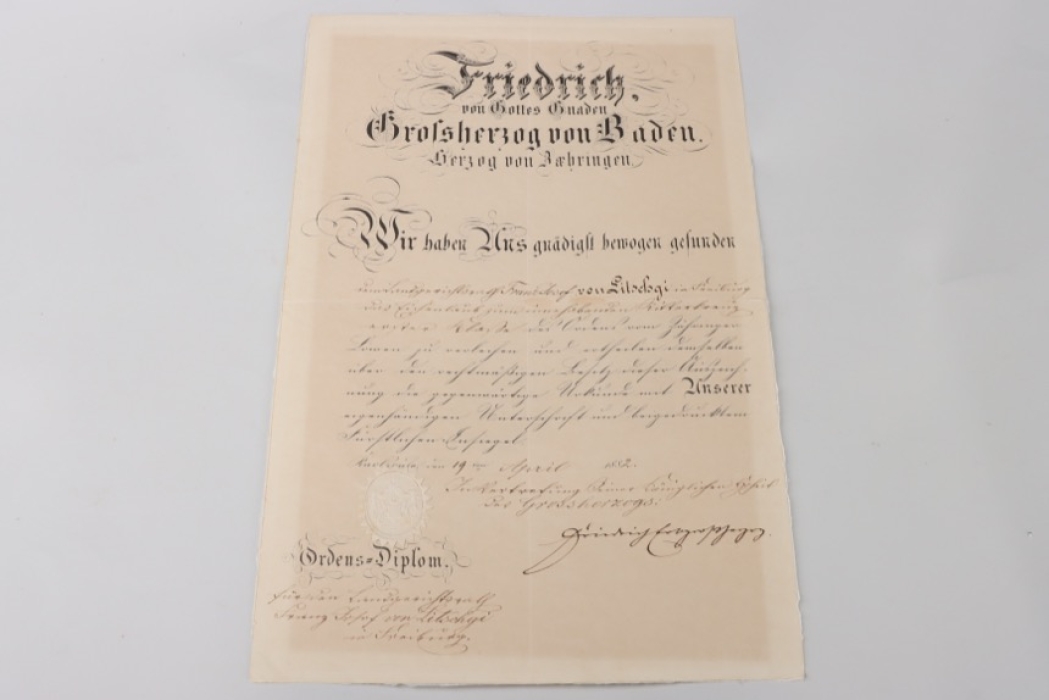 Friedrich,
von Gottes Gnaden
Grossherzog von Baden,
Herzog von Zæhringen.
Wir haben Uns gnädigst bewogen gefunden
dem Landgerichtsrath Franz Josef von Litschgi in Freiburg
das Eichenlaub zum innehabenden Ritterkreuz
erster Klasse des Ordens vom Zähringer
Löwen zu verleihen und ertheilen demselben
über den rechtmäßigen Besitz dieser Auszeich-
nung die gegenwärtige Urkunde mit Unserer
eigenhändigen Unterschrift und beigedrucktem
Fürstlichen Insiegel.
Karlsruhe, den 19ten April 1882.
In Vertretung Seiner Königlichen Hoheit
des Grossherzogs:
Friedrich Erbgroßherzog.
Ordens-Diplom.
für den Landgerichtsrath
Franz Josef von Litschgi
in Freiburg.